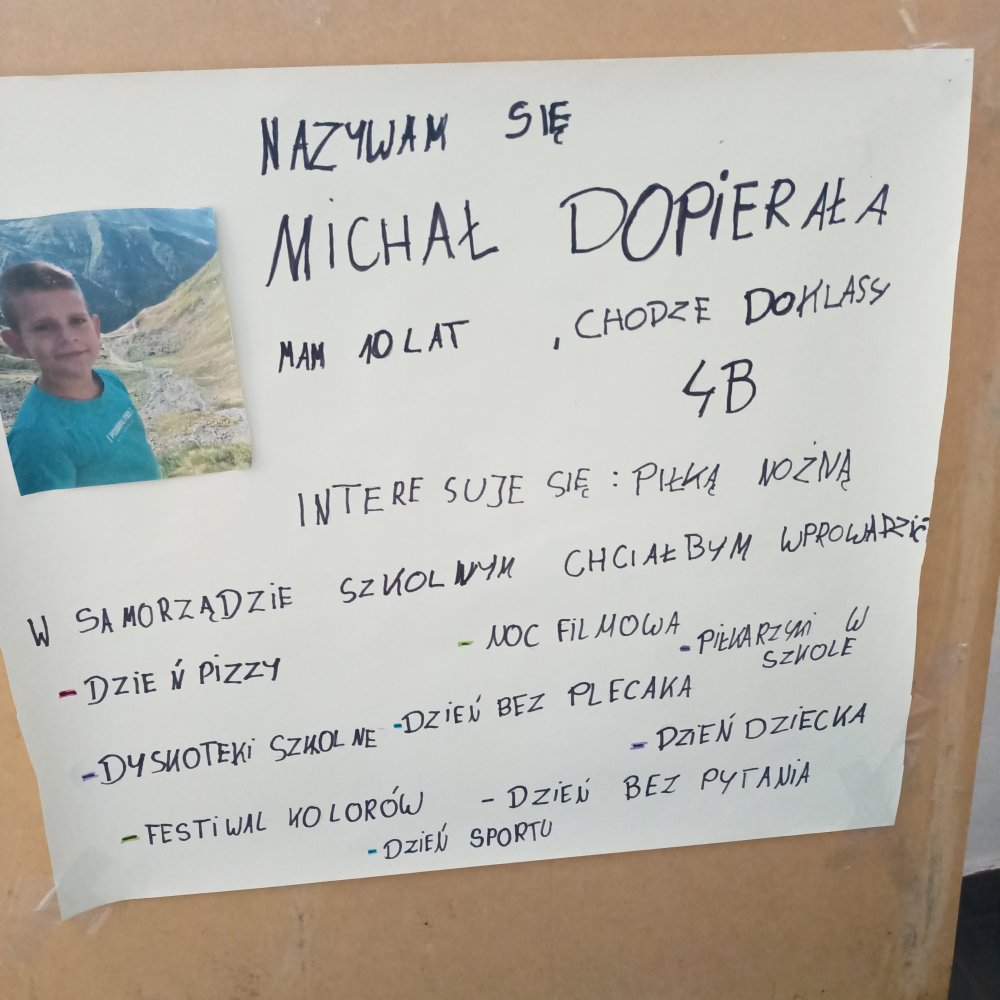 NAZYWAM SIĘ
MiCHAŁ DOPiERAŁA
MAM 10 LAT , CHODZE DO KLASY
4B
INTERESUJE SIĘ : PIŁKĄ NOŻNĄ
W SAMORZĄDZIE SZKOLNYM CHCIAŁBYM WPROWADZIĆ
- DZIEŃ PIZZY
- NOC FILMOWA
- PIŁKARZYKI W
SZKOLE
- DYSKOTEKi SZKOLNE
- DZIEŃ BEZ PLECAKA
- DZIEŃ DZIECKA
- FESTIWAL KOLORÓW
- DZIEŃ BEZ PYTANIA
- DZIEŃ SPORTU